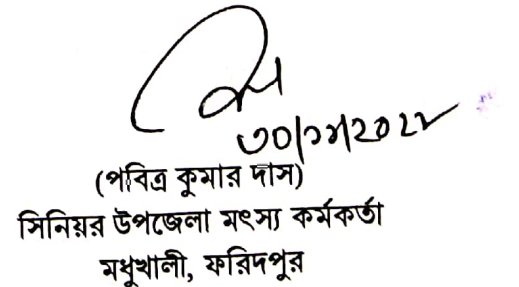 ৩০/১১/2022
(পবিত্র কুমার দাস)
সিনিয়র উপজেলা মৎস্য কর্মকর্তা
মধুখালী, ফরিদপুর